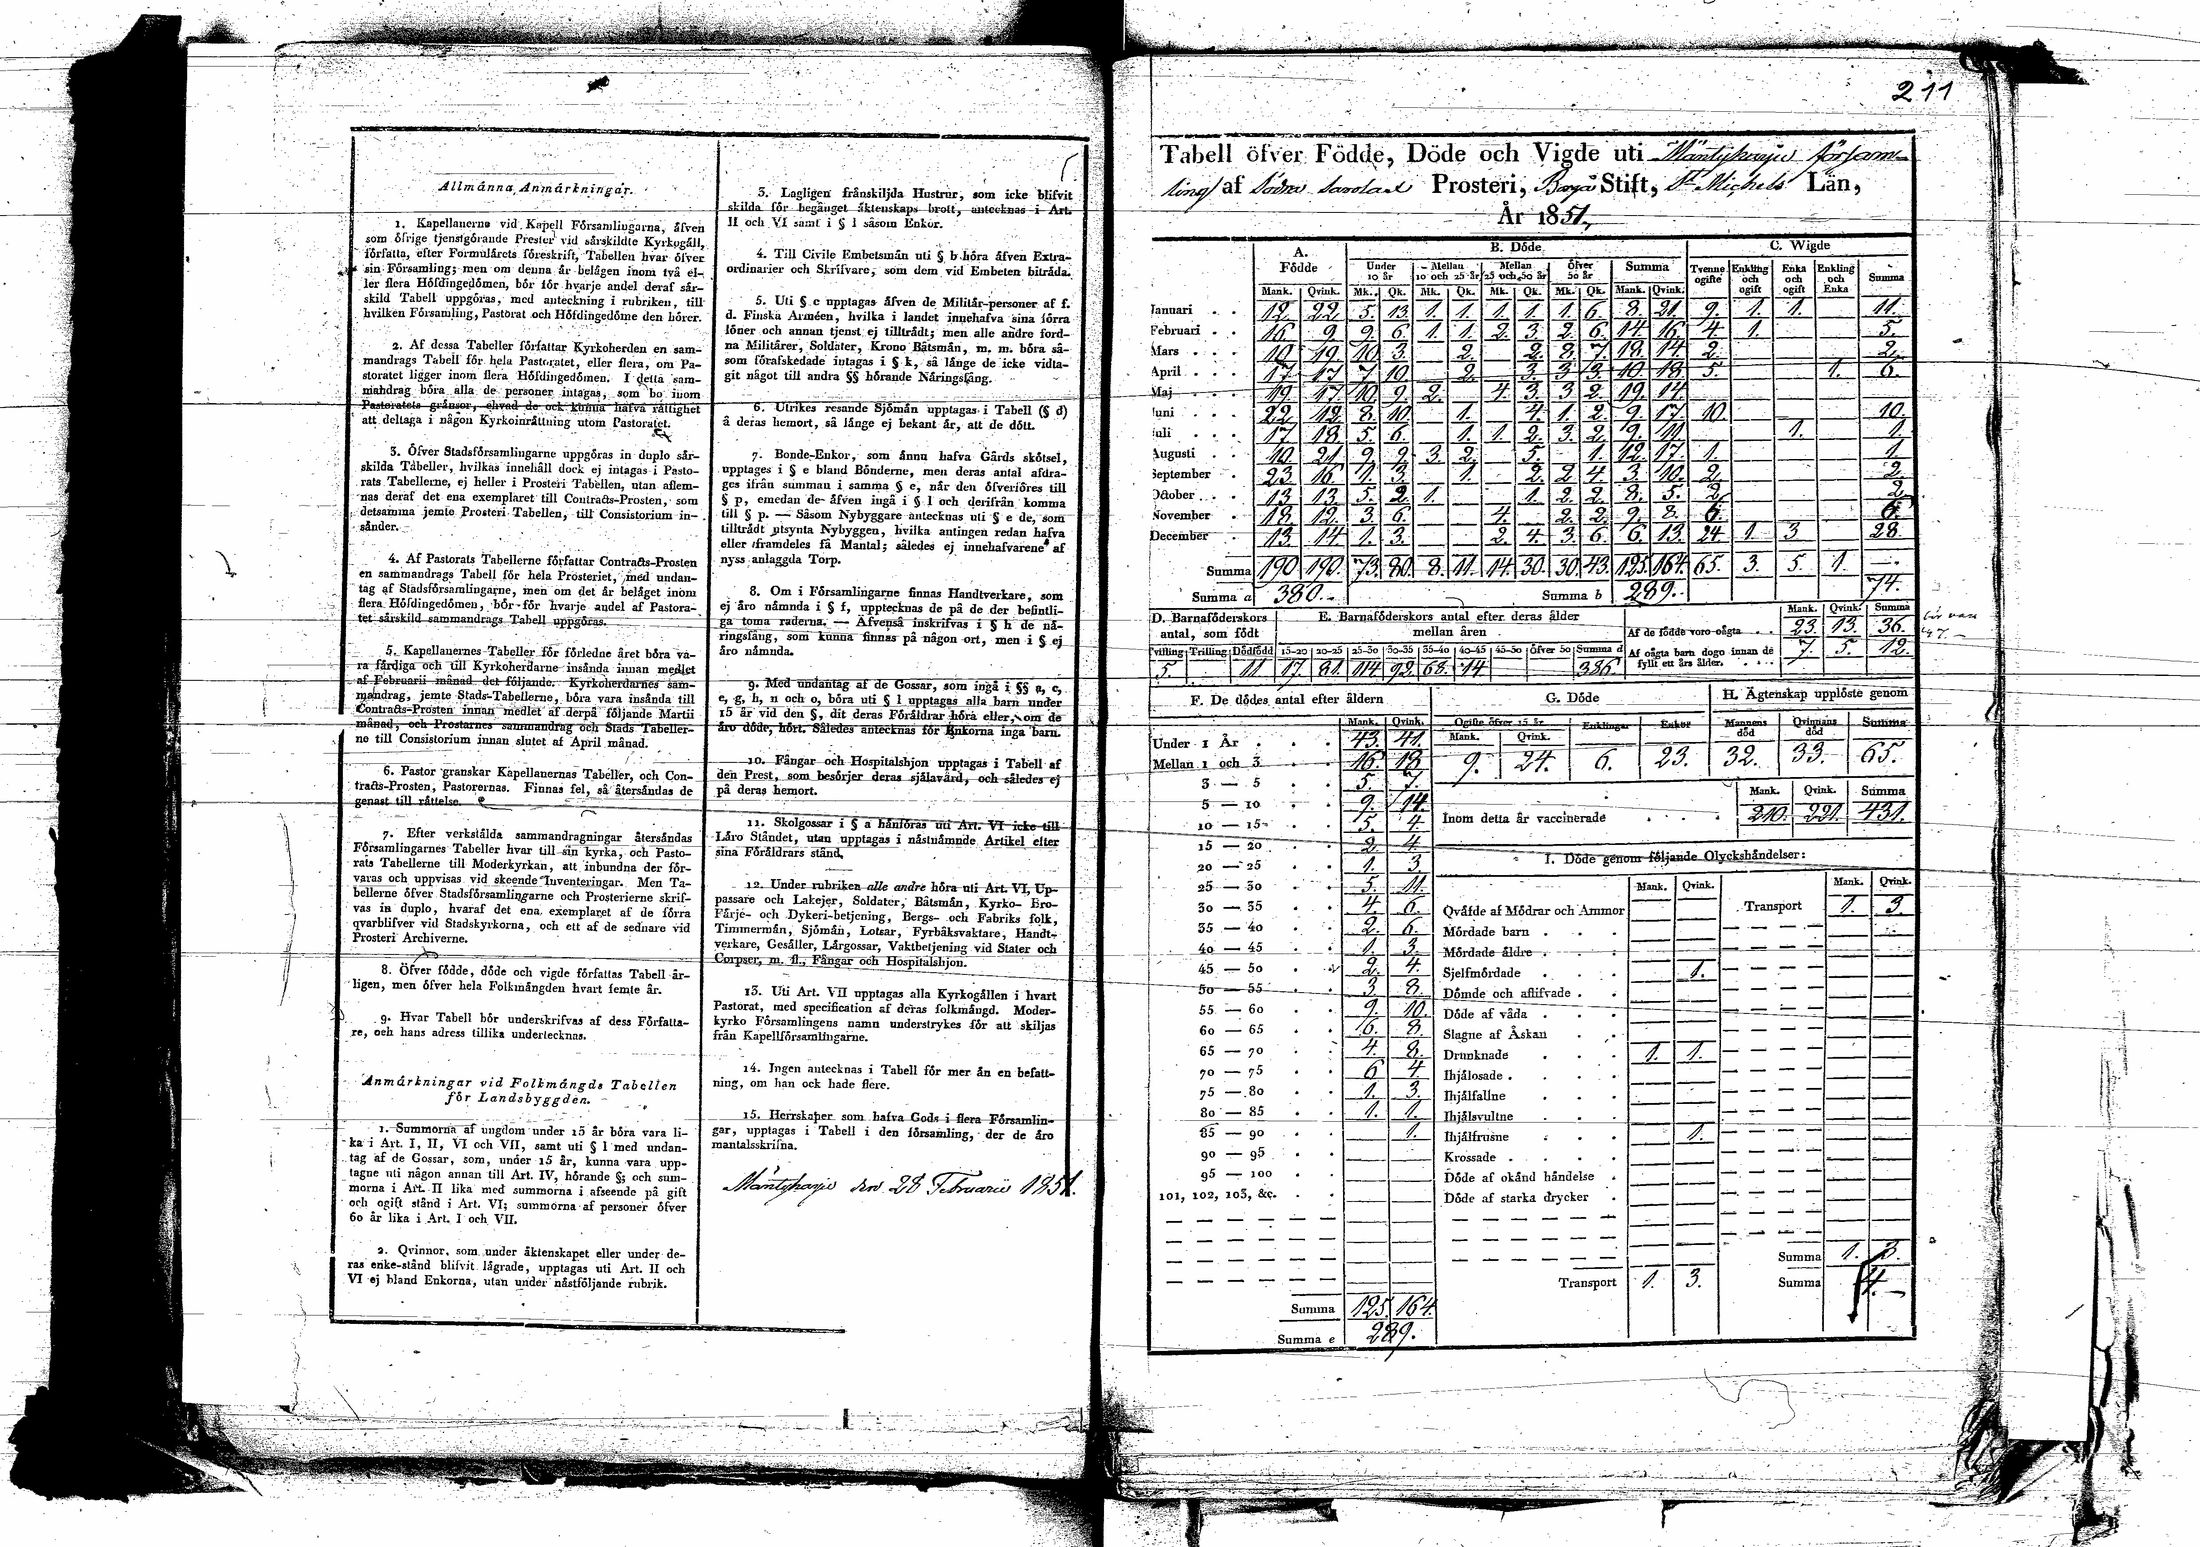 Allmänna Anmärkningar.
1. Kapellanerne vid Kapell Församlingarna, äfven
som öfrige tjenstgörande Prester vid särskildte Kyrkogäll,
författa, efter Formulärets föreskrift, Tabellen hvar öfver
sin Församling; men om denna är belägen inom två el-
ler flera Höfdingedömen, bör för hvarje andel deraf sär-
skild Tabell uppgöras, med anteckning i rubriken, till
hvilken Församling, Pastorat och Höfdingedöme den hörer.
2. Af dessa Tabeller författar Kyrkoherden en sam-
mandrags Tabell för hela Pastoratet, eller flera, om Pa-
storatet ligger inom flera Höfdingedömen. I detta sam-
mandrag böra alla de personer intagas, som bo inom
Pastoratets gränsor, ehvad de ock kunna hafva rättighet
att deltaga i någon Kyrkoinrättning utom Pastoratet.
3. Öfver Stadsförsamlingarne uppgöras in duplo sär-
skilda Tabeller, hvilkas innehåll dock ej intagas i Pasto-
rats Tabellerne, ej heller i Prosteri Tabellen, utan aflem-
nas deraf det ena exemplaret till Contracts-Prosten, som
detsamma jemte Prosteri Tabellen, till Consistorium in-
sänder.
4. Af Pastorats Tabellerne författar Contracts-Prosten
en sammandrags Tabell för hela Prosteriet, med undan-
tag af Stadsförsamlingarne, men om det är beläget inom
flera Höfdingedömen, bör för hvarje andel af Pastora-
tet särskild sammandrags Tabell uppgöras.
5. Kapellanernes Tabeller för förledne året böra va-
ra färdiga och till Kyrkoherdarne insända innan medlet
af Februarii månad det följande. Kyrkoherdarnes sam-
mandrag, jemte Stads-Tabellerne, böra vara insända till
Contracts-Prosten innan medlet af derpå följande Martii
månad, och Prostarnes sammandrag och Stads Tabeller-
ne till Consistorium innan slutet af April månad.
6. Pastor granskar Kapellanernas Tabeller, och Con-
tracts-Prosten, Pastorernes. Finnas fel, så återsändas de
genast till rättelse.
7. Efter verkställda sammandragningar återsändas
Församlingarnes Tabeller hvar till sin kyrka, och Pasto-
rats Tabellerne till Moderkyrkan, att inbundna der för-
varas och uppvisas vid skeende Inventeringar. Men Ta-
bellerne öfver Stadsförsamlingarne och Prosterierne skrif-
vas in duplo, hvaraf det ena exemplaret af de förra
qvarblifver vid Stadskyrkorna, och ett af de sednare vid
Prosteri Archiverne.
8. Öfver födde, döde och vigde författas Tabell år-
ligen, men öfver hela Folkmängden hvart femte år.
9. Hvar Tabell bör underskrifvas af dess Författa-
re, och hans adress tillika undertecknas.
Anmärkningar vid Folkmängds Tabellen
för Landsbyggden.
1. Summorna af ungdom under 15 år böra vara li-
ka i Art. I, II, VI och VII, samt uti § l med undan-
tag af de Gossar, som, under 15 år, kunna vara upp-
tagne uti någon annan till Art. IV, hörande §; och sum-
morna i Art. II lika med summorna i afseende på gift
och ogift stånd i Art. VI; summorna af personer öfver
60 år lika i Art. I och VII.
2. Qvinnor, som under äktenskapet eller under de-
ras enke-stånd blifvit lägrade, upptagas uti Art. II och
VI ej bland Enkorna, utan under nästföljande rubrik.
3. Lagligen frånskiljda Hustrur, som icke blifvit
skilda för begånget äktenskaps brott, antecknas i Art.
II och VI samt i § l såsom Enkor.
4. Till Civile Embetsmän uti § b höra äfven Extra-
ordinarier och Skrifvare, som dem vid Embeten biträda.
5. Uti § c upptagas äfven de Militär-personer af f.
d. Finska Arméen, hvilka i landet innehafva sina förra
löner och annan tjenst ej tillträdt; men alle andre ford-
na Militärer, Soldater, Krono Båtsmän, m. m. böra så-
som förafskedade intagas i § k, så länge de icke vidta-
git något till andra §§ hörande Näringsfång.
6. Utrikes resande Sjömän upptagas i Tabell (§ d)
å deras hemort, så länge ej bekant är, att de dött.
7. Bonde-Enkor, som ännu hafva Gårds skötsel,
upptages i § e bland Bönderne, men deras antal afdra-
ges ifrån summan i samma § e, når den öfverföres till
§ p, emedan de äfven ingå i § l och derifrån komma
till § p. — Såsom Nybyggare antecknas uti § e de, som
tillträdt utsynta Nybyggen, hvilka antingen redan hafva
eller framdeles få Mantal; således ej innehafvarene af
nyss anlaggda Torp.
8. Om i Församlingarne finnas Handtverkare, som
ej äro nämnda i § f, upptecknas de på de der befintli-
ga toma raderna. — Äfvenså inskrifvas i § h de nä-
ringsfång, som kunna finnas på någon ort, men i § ej
äro nämnda.
9. Med undantag af de Gossar, som ingå i §§ a, c,
e, g, h, n och o, böra uti § l upptagas alla barn under
15 år vid den §, dit deras Föräldrar höra eller, om de
äro döde, hört. Således antecknas för Enkorna inga barn.
10. Fångar och Hospitalshjon upptagas i Tabell af
den Prest, som besörjer deras själavård, och således ej
på deras hemort.
11. Skolgossar i § a hänföras uti Art. VI icke till
Läro Ståndet, utan upptagas i nästnämnde Artikel efter
sina Föräldrars stånd.
12. Under rubriken alle andre höra uti Art. VI, Up-
passare och Lakejer, Soldater, Båtsmän, Kyrko- Bro-
Färje- och Dykeri-betjening, Bergs- och Fabriks folk,
Timmermän, Sjömän, Lotsar, Fyrbåksvaktare, Handt-
verkare, Gesäller, Lärgossar, Vaktbetjening vid Stater och
Corpser, m. fl., Fångar och Hospitalshjon.
13. Uti Art. VII upptagas alla Kyrkogällen i hvart
Pastorat, med specification af deras folkmängd. Moder-
kyrko Församlingens namn understrykes för att skiljas
från Kapellförsamlingarne.
14. Ingen antecknas i Tabell för mer än en befatt-
ning, om han ock hade flere.
15. Herrskaper som hafva Gods i flera Församlin-
gar, upptagas i Tabell i den församling, der de äro
mantalsskrifna.
Mäntyharju den 28 Februarii 1851.
211
Tabell öfver Födde, Döde och Vigde uti Mäntyharju försam-
ling af Södra Savolax Prosteri, Borgå Stift, St Michels Län,
År 1851,
A. Födde B. Döde C. Wigde
Under 10 år Mellan 10 och 25 år Mellan 25 och 50 år Öfver 50 år Summa Tvenne ogifte Enkling och ogift Enka och ogift Enkling och Enka Summa
Mank. Qvink. Mk. Qk. Mk. Qk. Mk. Qk. Mk. Qk. Mank. Qvink.
Januari 12. 22. 5. 13. 1. 1. 1. 1. 1. 6. 8. 21. 9. 1. 1. 11.
Februari 16. 9. 9. 6. 1. 1. 2. 3. 2. 6. 14. 16. 4. 1. 5.
Mars 10. 19. 10. 3. — 2. — 2. 8. 7. 18. 14. 2. 2.
April 17. 17. 7. 10. — 2. — 3. 3. 3. 10. 18. 5. 1. 6.
Maj 19. 17. 10. 9. 2. — 4. 3. 3. 2. 19. 14.
Juni 22. 12. 8. 10. — 1. — 4. 1. 2. 9. 17. 10. 10.
Juli 17. 18. 5. 6. — 1. 1. 2. 3. 2. 9. 11. 1. 1.
Augusti 10. 21. 9. 9. 3. 2. — 5. — 1. 12. 17. 1. 1.
September 23. 16. 1. 3. — 1. — 2. 2. 4. 3. 10. 2. 2.
October 13. 13. 5. 2. 1. — — 1. 2. 2. 8. 5. 2. 2.
November 18. 12. 3. 6. — — 4. — 2. 2. 9. 8. 6. 6.
December 13. 14. 1. 3. — — 2. 4. 3. 6. 6. 13. 24. 1. 3 28.
Summa 190. 190. 73. 80. 8. 11. 14. 30. 30. 43. 125. 164. 65. 3. 5. 1. —
Summa a 380. Summa b 289. 74.
D. Barnaföderskors antal, som födt
E. Barnaföderskors antal efter deras ålder mellan åren
Mank. Qvink. Summa
Af de födde voro oägta 23. 13. 36.
Af oägta barn dogo innan de fyllt ett års ålder. 7. 5. 12.
Tvilling Trilling Dödfödd 15—20 20—25 25—30 30—35 35—40 40—45 45—50 Öfver 50 Summa d
5. 11 17. 81. 114 92. 68. 14 386.
F. De dödes antal efter åldern
Mank. Qvink.
Under 1 År 43. 41.
Mellan 1 och 3 16. 18.
3 — 5 5. 7.
5 — 10 9. 14.
10 — 15 5. 4.
15 — 20 2. 4.
20 — 25 1. 3
25 — 30 5. 11.
30 — 35 4. 6.
35 — 40 2. 6.
40 — 45 1. 3.
45 — 50 2. 4.
50 — 55 3. 8.
55 — 60 9. 10.
60 — 65 6. 8.
65 — 70 4. 8.
70 — 75 6 4
75 — 80 1. 3.
80 — 85 1. 1.
85 — 90 1.
90 — 95
95 — 100
101, 102, 103, &c.
Summa 125. 164.
Summa e 289.
G. Döde
Ogifte öfver 15 år Enklingar Enkor
Mank. Qvink.
9. 24. 6. 23.
H. Ägtenskap upplöste genom
Mannens död Qvinnans död Summa
32. 33. 65.
Mank. Qvink. Summa
Inom detta år vaccinerade 210. 221. 431.
I. Döde genom följande Olyckshändelser:
Mank. Qvink. Mank. Qvink.
Qväfde af Mödrar och Ammor Transport 1. 3.
Mördade barn
Mördade äldre
Sjelfmördade 1.
Dömde och aflifvade
Döde af våda
Slagne af Åskan
Drunknade 1. 1.
Ihjälosade
Ihjälfallne
Ihjälsvultne
Ihjälfrusne 1.
Krossade
Döde af okänd händelse
Döde af starka drycker
Summa 1. 3.
Transport 1. 3. Summa 4.